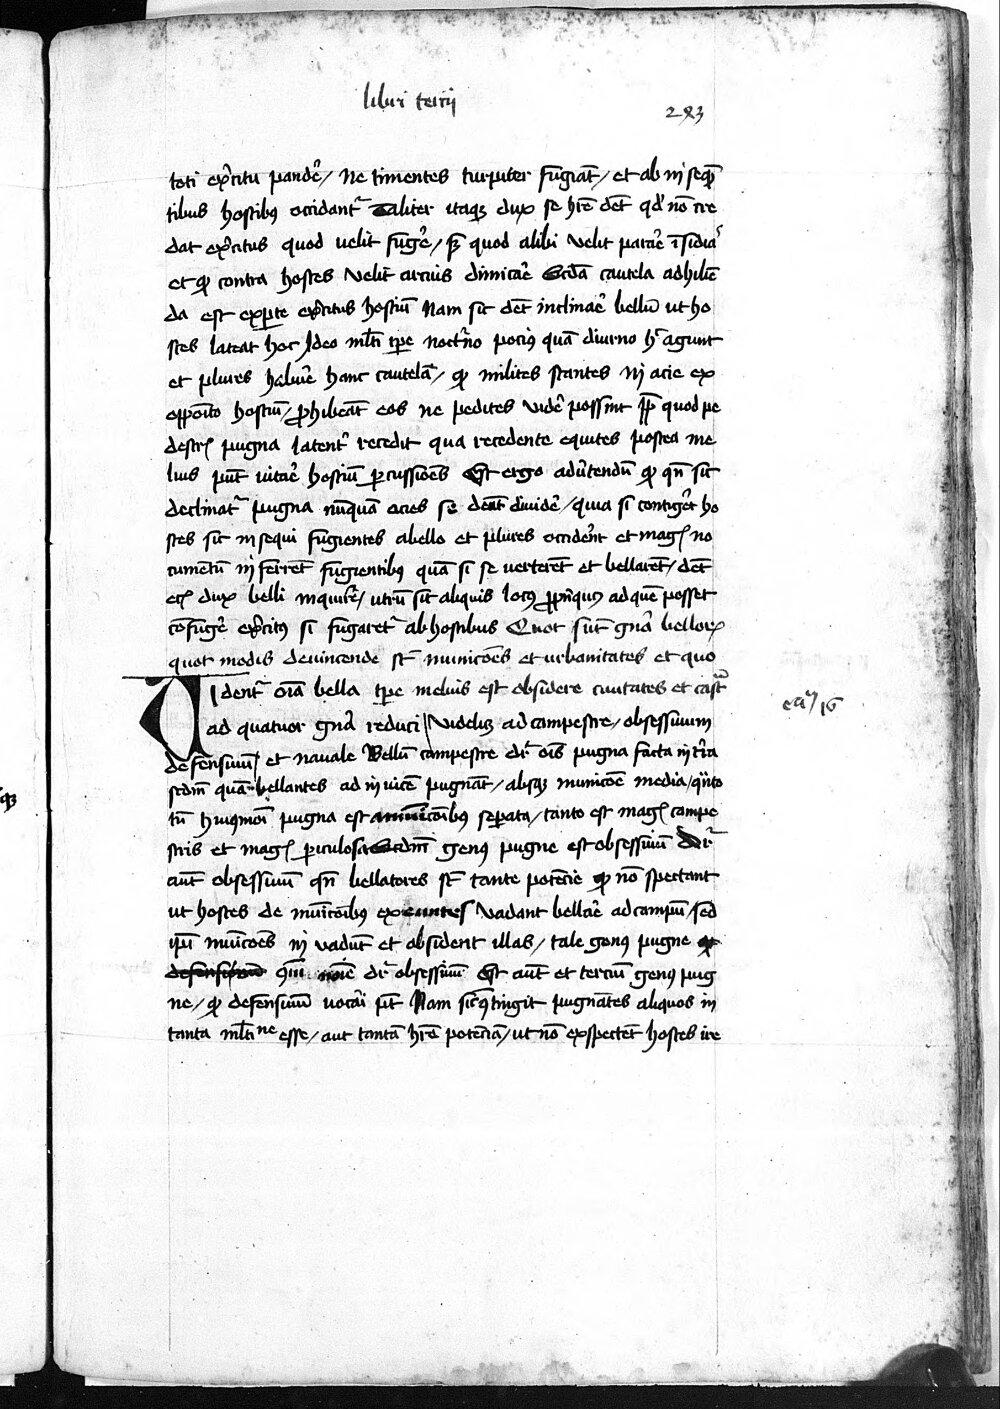 libri tercij
283
toti exercitu pandere / Ne timentes turpiter fugiant / et ab insequen
tibus hostibus occidantur Taliter itaque dux se habere debet quod non cre
dat exercitus quod velit fugere / sed quod alibi velit parare insidias
et quod contra hostes velit arcius dimicare Secunda cautela adhiben
da est ex parte exercitus hostium Nam sic debet inclinare bellum ut ho
stes lateat hoc Ideo multi tempore nocturno pocius quam diurno hoc agunt
et plures habuere hanc cautelam / quod milites stantes in acie ex
opposito hostium / prohibeant eos ne pedites videre possint propter quod pe
destris pugna latenter recedit qua recedente equites postea me
lius possunt vitare hostium percussiones Est ergo advertendum quod quando sic
declinatur pugna nunquam acies se debent dividere / quia si contigeret ho
stes sic insequi fugientes a bello et plures occiderent et magis no
cumentum inferrent fugientibus quam si se verterent et bellarent / debet
eciam dux belli inquirere / utrum sit aliquis locus propinquus ad quem posset
confugere exercitus si fugaretur ab hostibus Quot sunt genera bellorum
quot modis devincende sunt municiones et urbanitates et quo
tempore melius est obsidere civitates et castra
Videntur omnia bella
ca 16
ad quatuor genera reduci / Videlicet ad campestre / obsessivum
defensivum / et navale Bellum campestre dicitur omnis pugna facta in terra
secundum quam bellantes ad invicem pugnant / absque municione media / quanto
tamen huiusmodi pugna est a municionibus separata / tanto est magis campe
stris et magis periculosa Secundum genus pugne est obsessivum Dicitur
autem obsessivum quando bellatores sunt tante potencie quod non spectant
ut hostes de municionibus exeuntes vadant bellare ad campum / sed
ipsum municiones invadunt et obsident illas / tale genus pugne
nomine dicitur obsessivum Est autem et tercium genus pug
ne / quod defensivum vocari potest Nam si contingit pugnantes aliquos in
tanta multitudine esse / aut tantam habere potenciam / ut non exspectent hostes ire